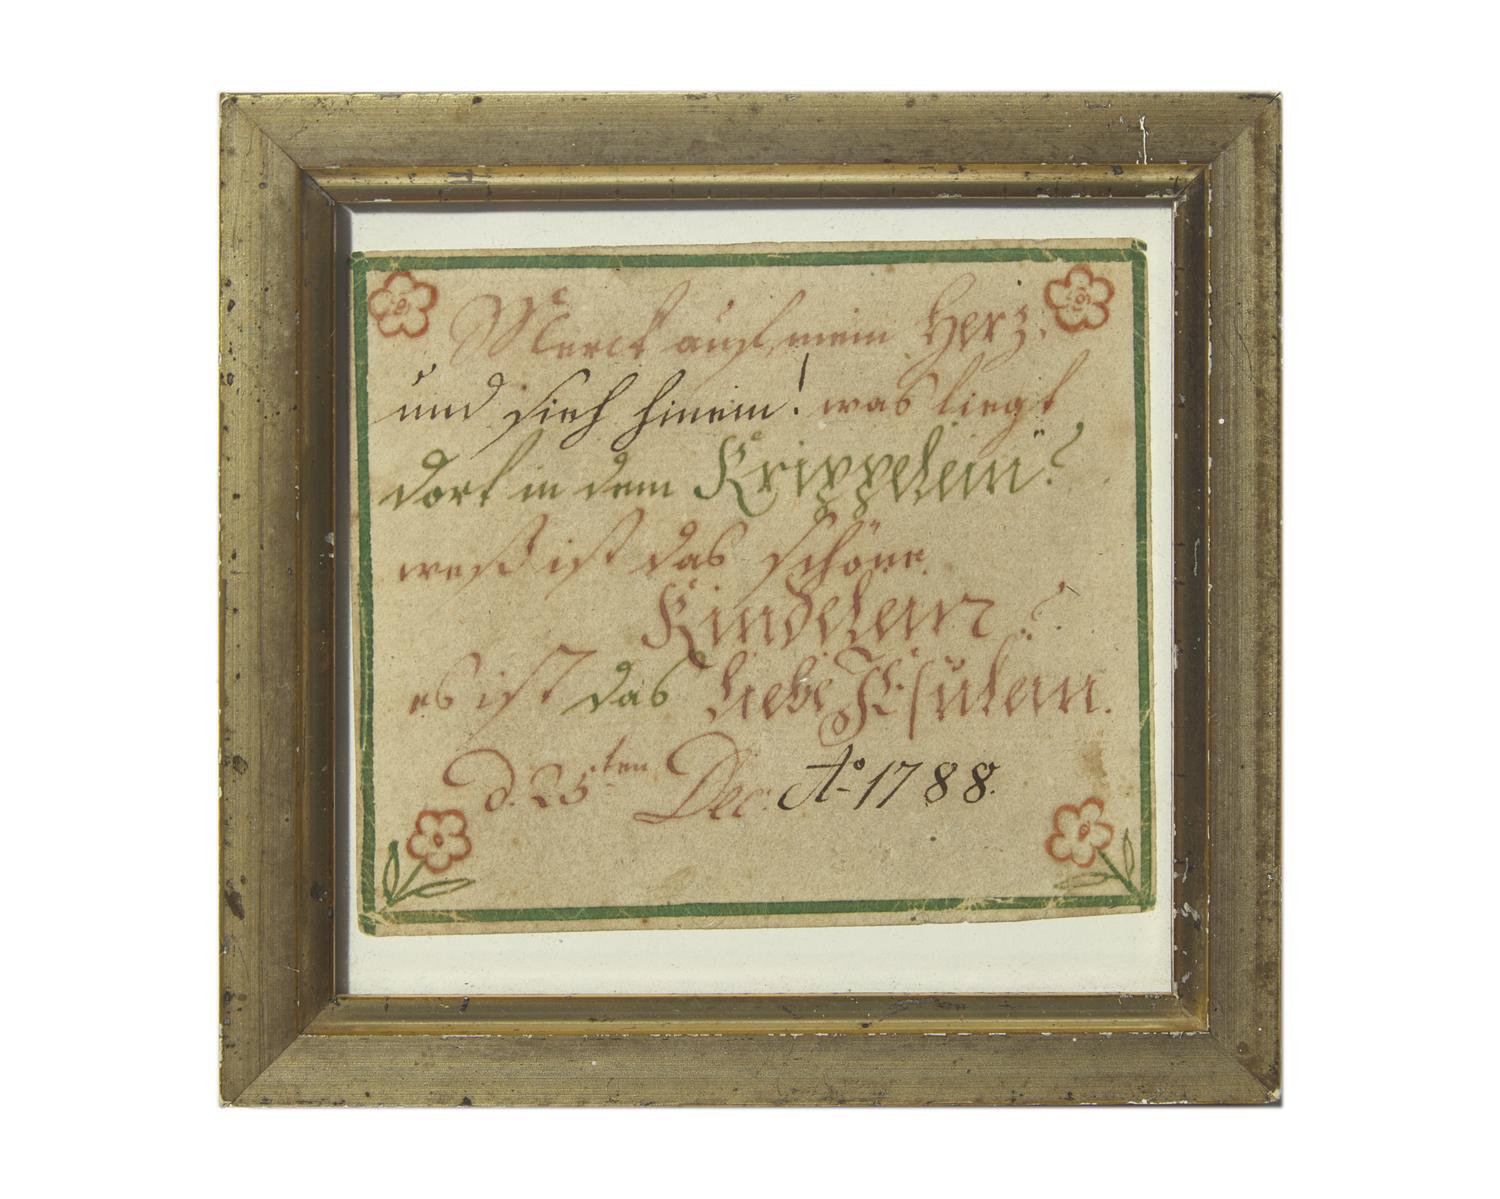 Merck auf, mein Herz,
und sieh hinein! was liegt
dort in dem Krippelein?
weß ist das schöne
Kindelein?
es ist das liebe JEsulein.
d. 25ten Dec: Ao 1788.